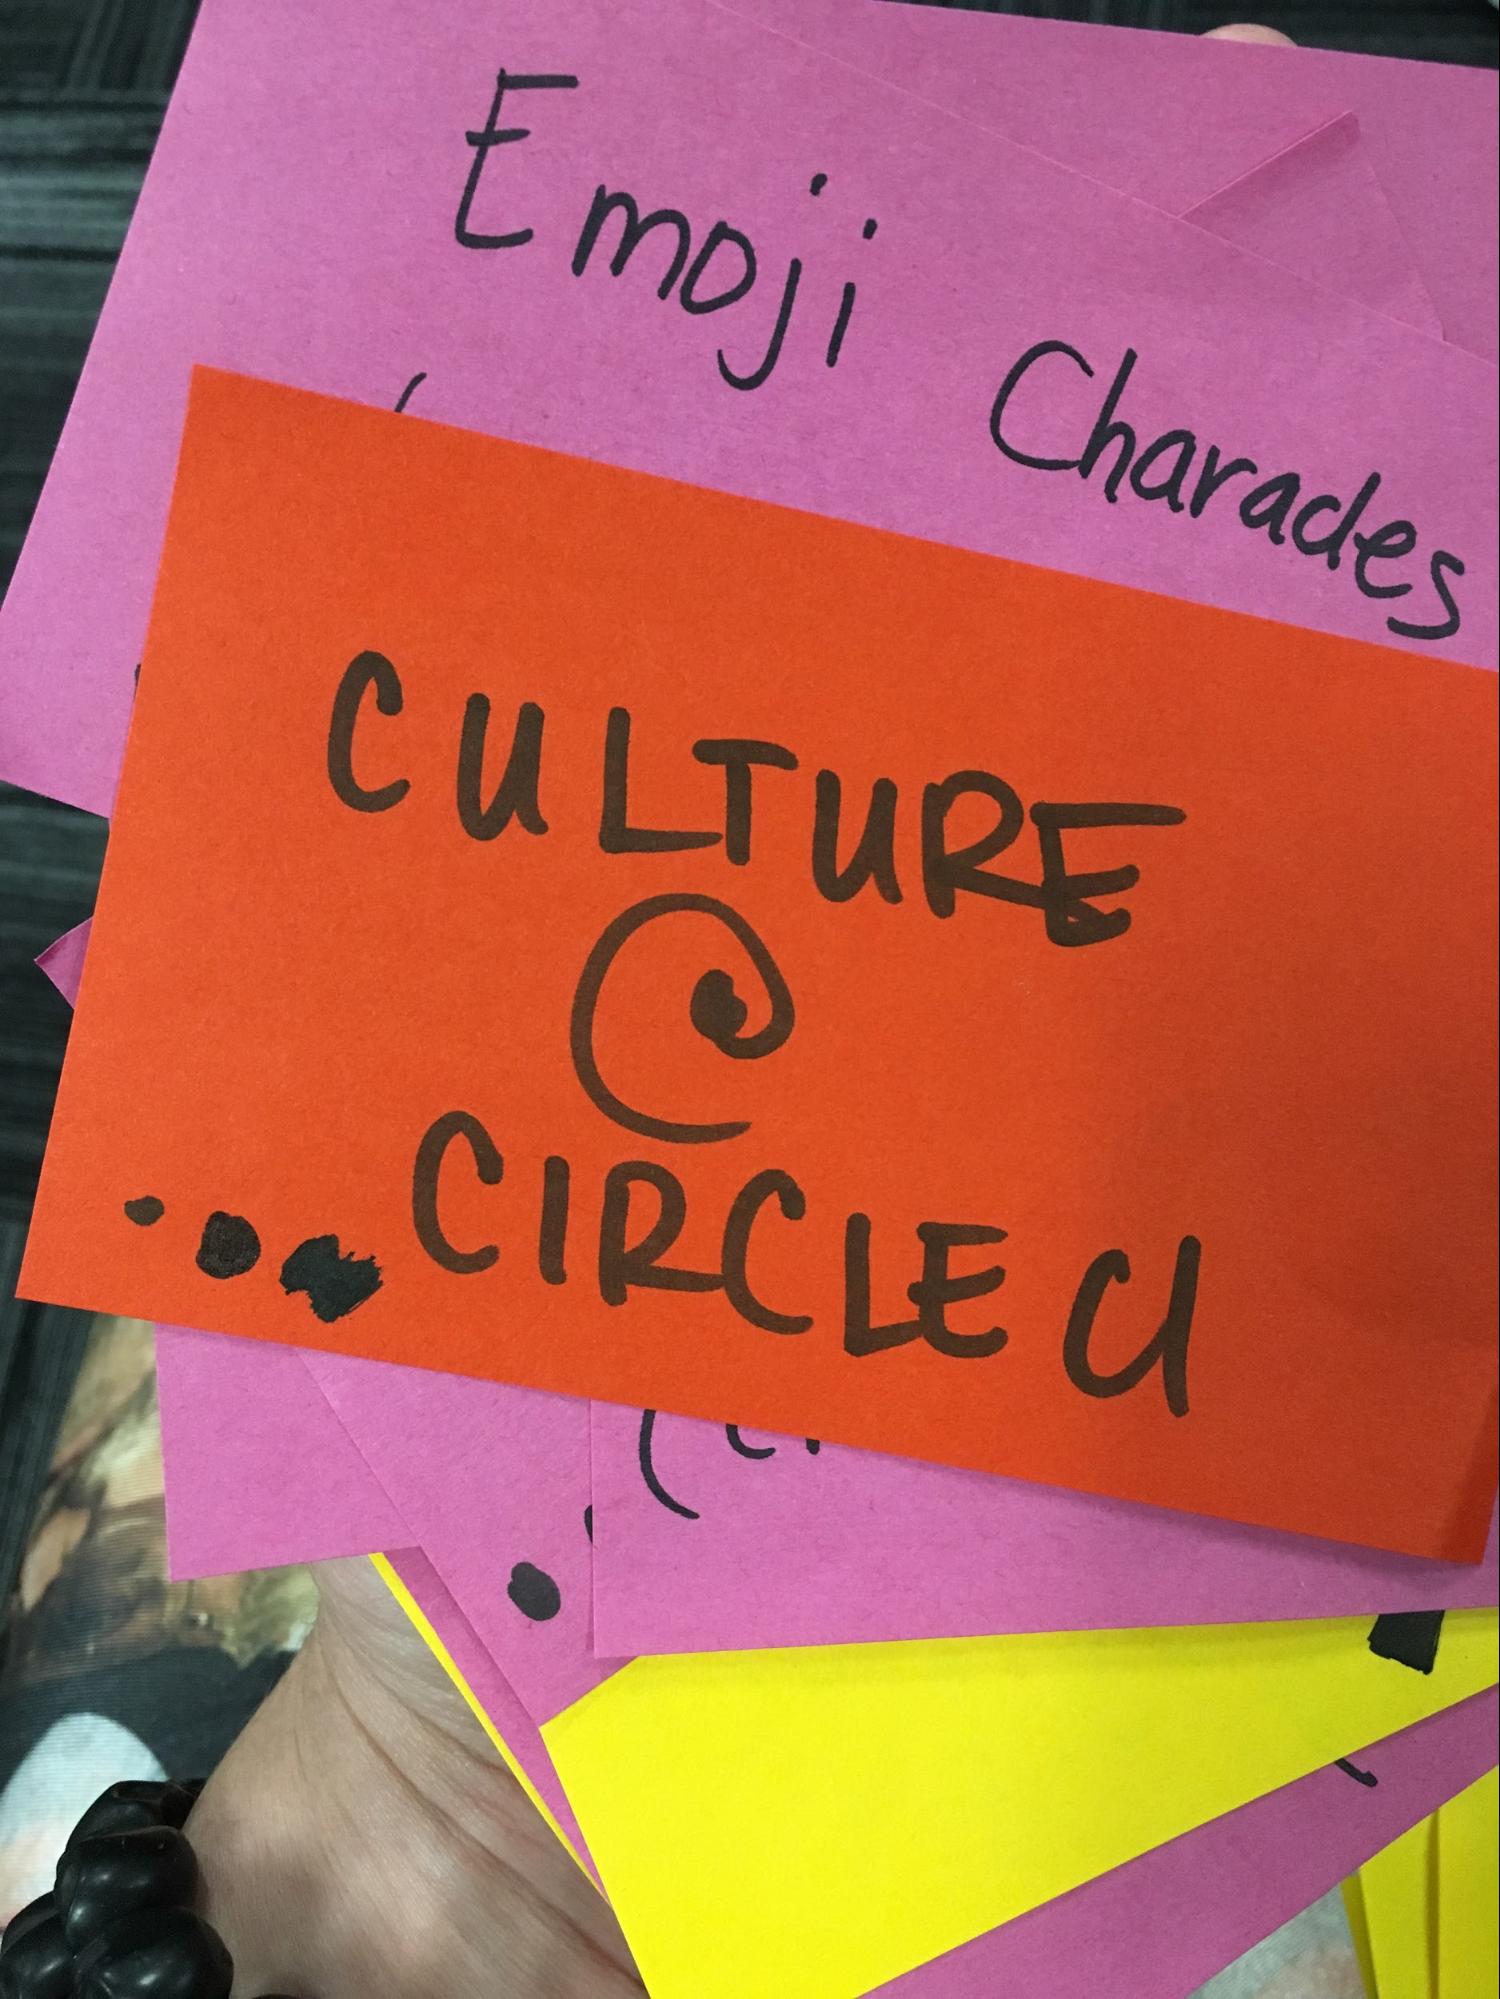 Emoji Charades
CULTURE
@
CIRCLE U